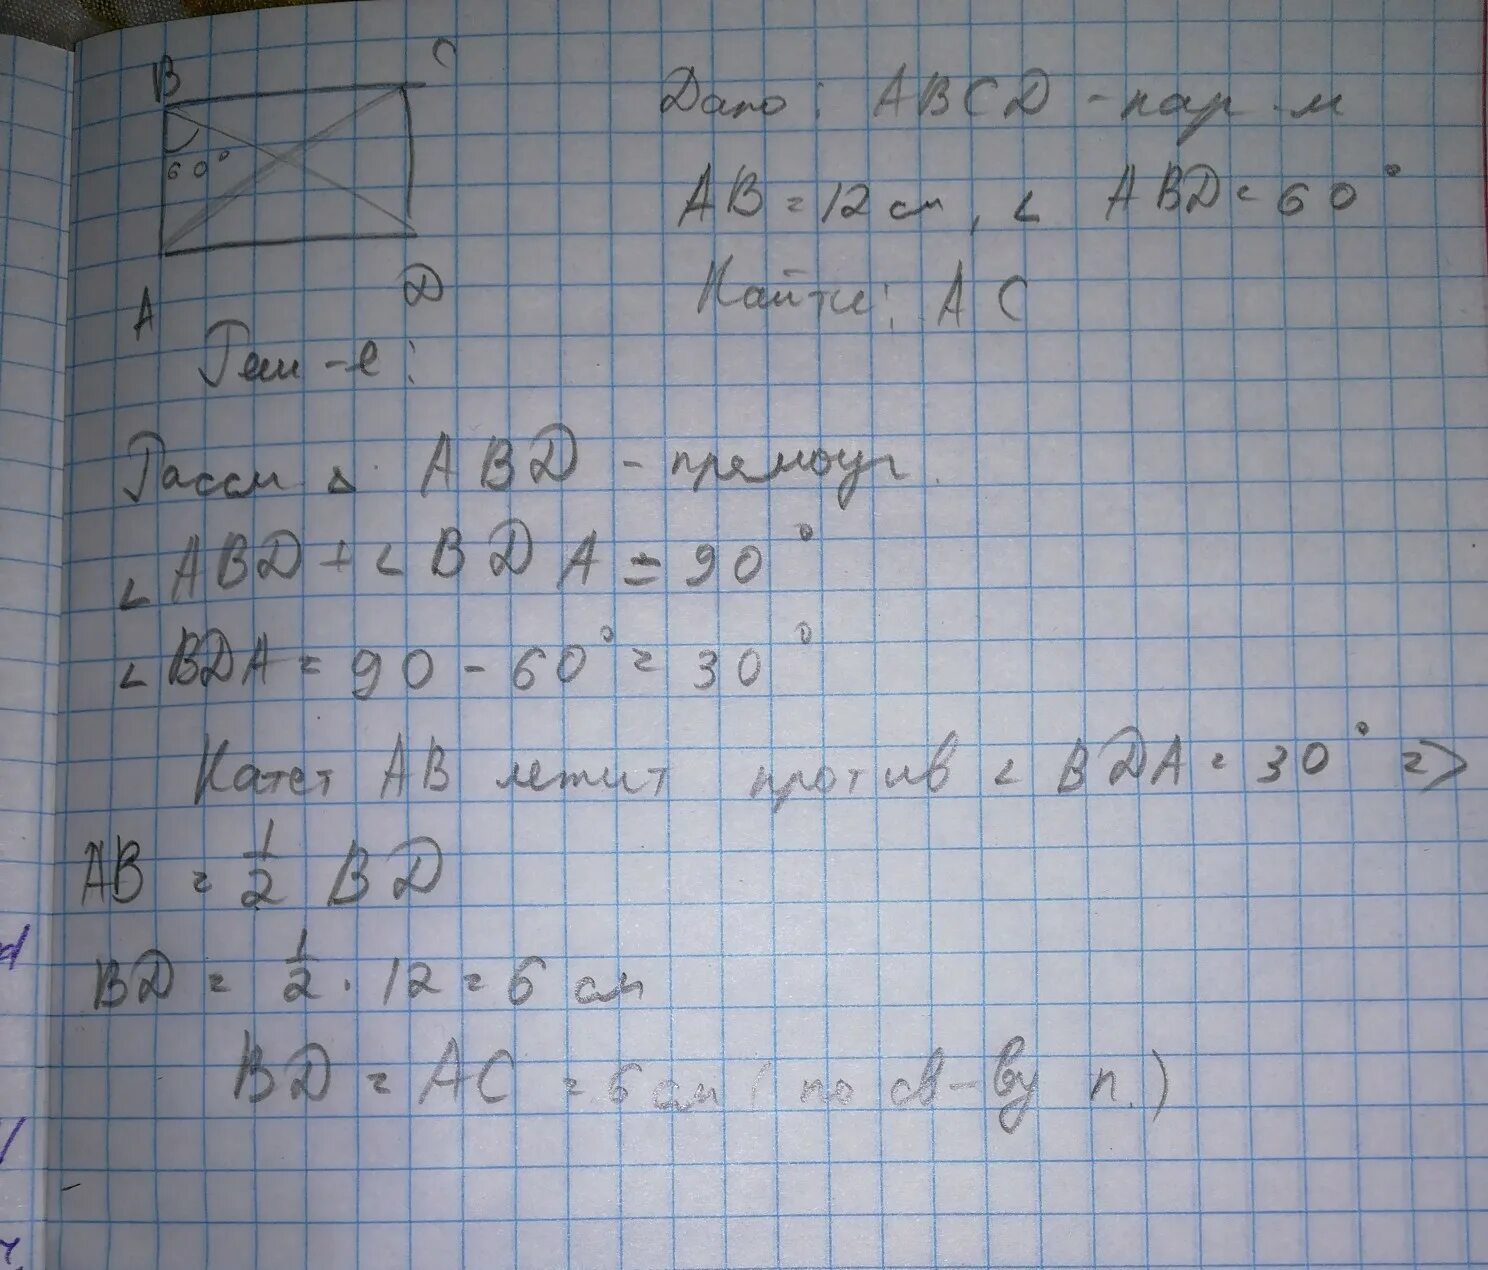 B C
60°
A D
Дано: ABCD - пар-м
AB = 12 см, ∠ ABD = 60°
Найти: AC
Реш-е:
Рассм △ ABD - прямоуг.
∠ABD + ∠BDA = 90°
∠BDA = 90 - 60° = 30°
Катет AB лежит против ∠BDA = 30° =>
AB = 1/2 BD
BD = 1/2 · 12 = 6 см
BD = AC = 6 см (по св-ву п.)